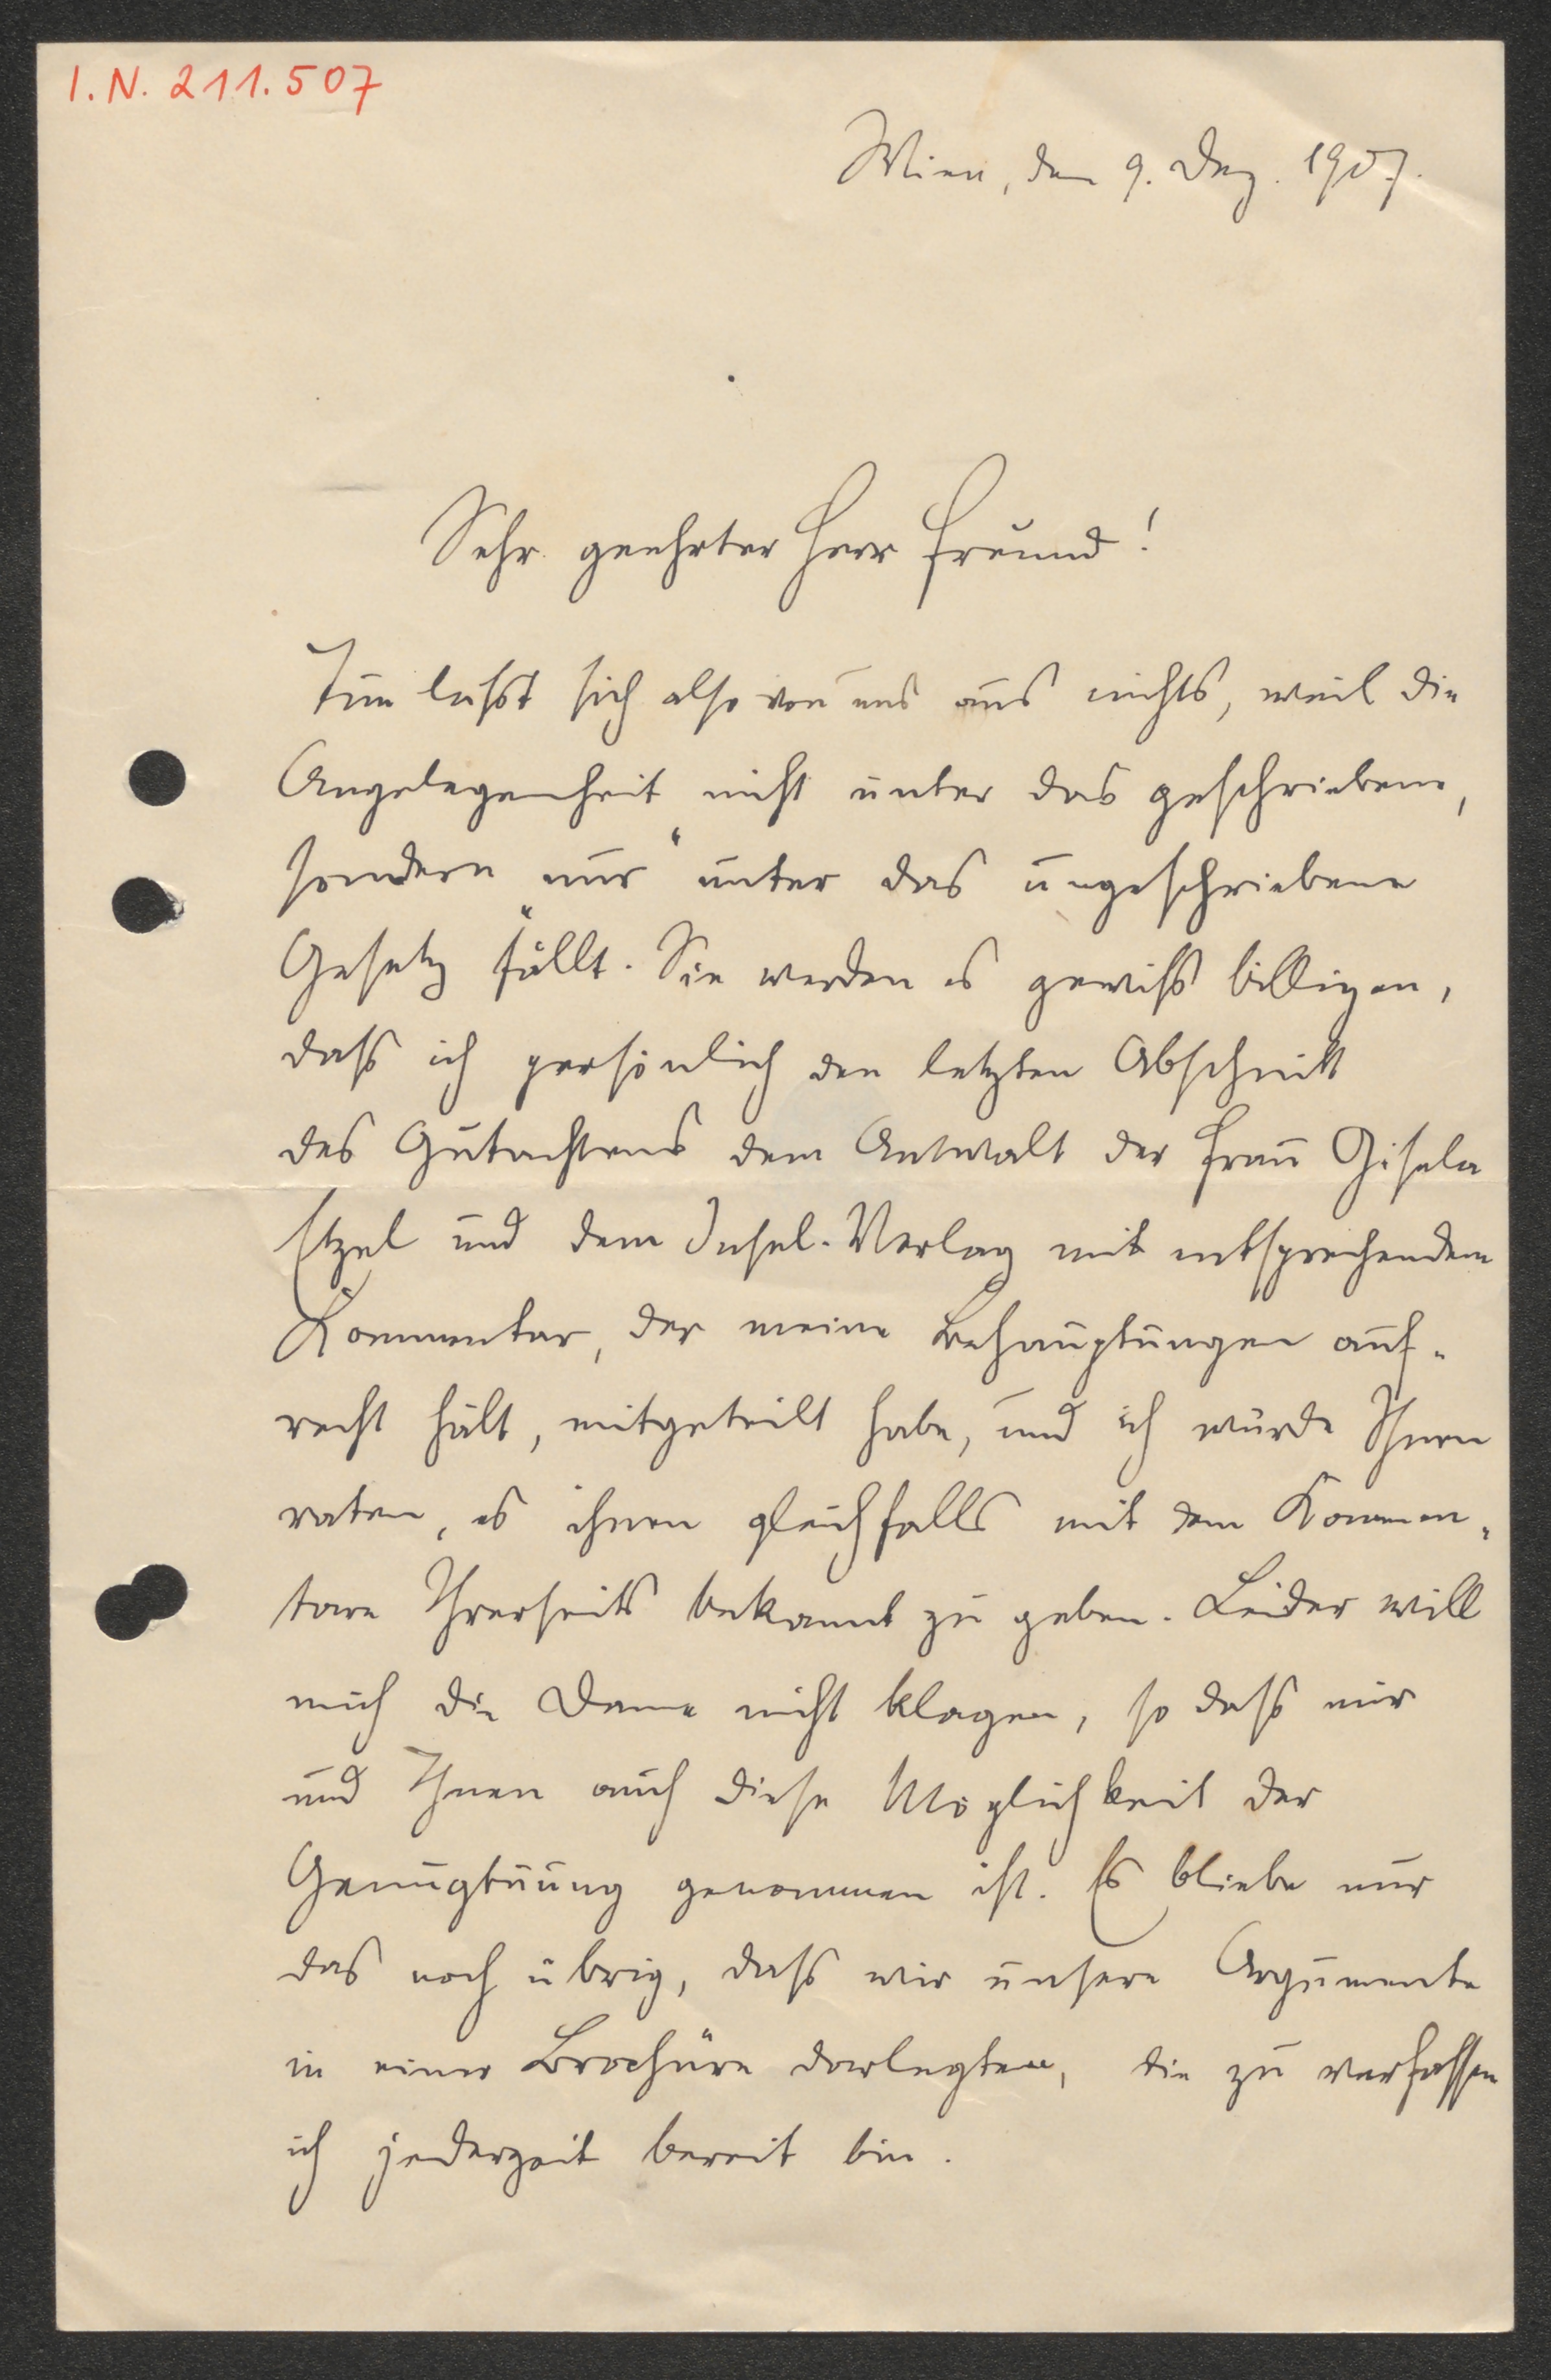 I.N. 211.507
Wien, den 9. Dez. 1907.
Sehr geehrter Herr Freund!
Tun lässt sich also von uns aus nichts, weil die
Angelegenheit nicht unter das geschriebene,
sondern „nur“ unter das ungeschriebene
Gesetz fällt. Sie werden es gewiss billigen,
dass ich persönlich den letzten Abschnitt
des Gutachtens dem Anwalt der Frau Gisela
Etzel und dem Insel-Verlag mit entsprechendem
Kommentar, der meine Behauptungen auf-
recht hält, mitgeteilt habe, und ich würde Ihnen
raten, es ihnen gleichfalls mit dem Kommen-
tare Ihrerseits bekannt zu geben. Leider will
mich die Dame nicht klagen, so dass mir
und Ihnen auch diese Möglichkeit der
Genugtuung genommen ist. Es bliebe nur
das noch übrig, dass wir unsere Argumente
in einer Brochüre darlegten, die zu verfassen
ich jederzeit bereit bin.